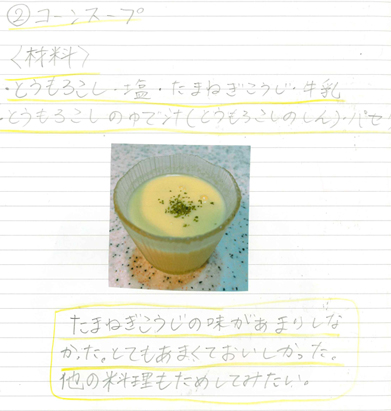 ②コーンスープ
〈材料〉
・とうもろこし・塩・たまねぎこうじ・牛乳
・とうもろこしのゆで汁(とうもろこしのしん)・パセ
たまねぎこうじの味があまりしな
かった。とてもあまくておいしかった。
他の料理もためしてみたい。